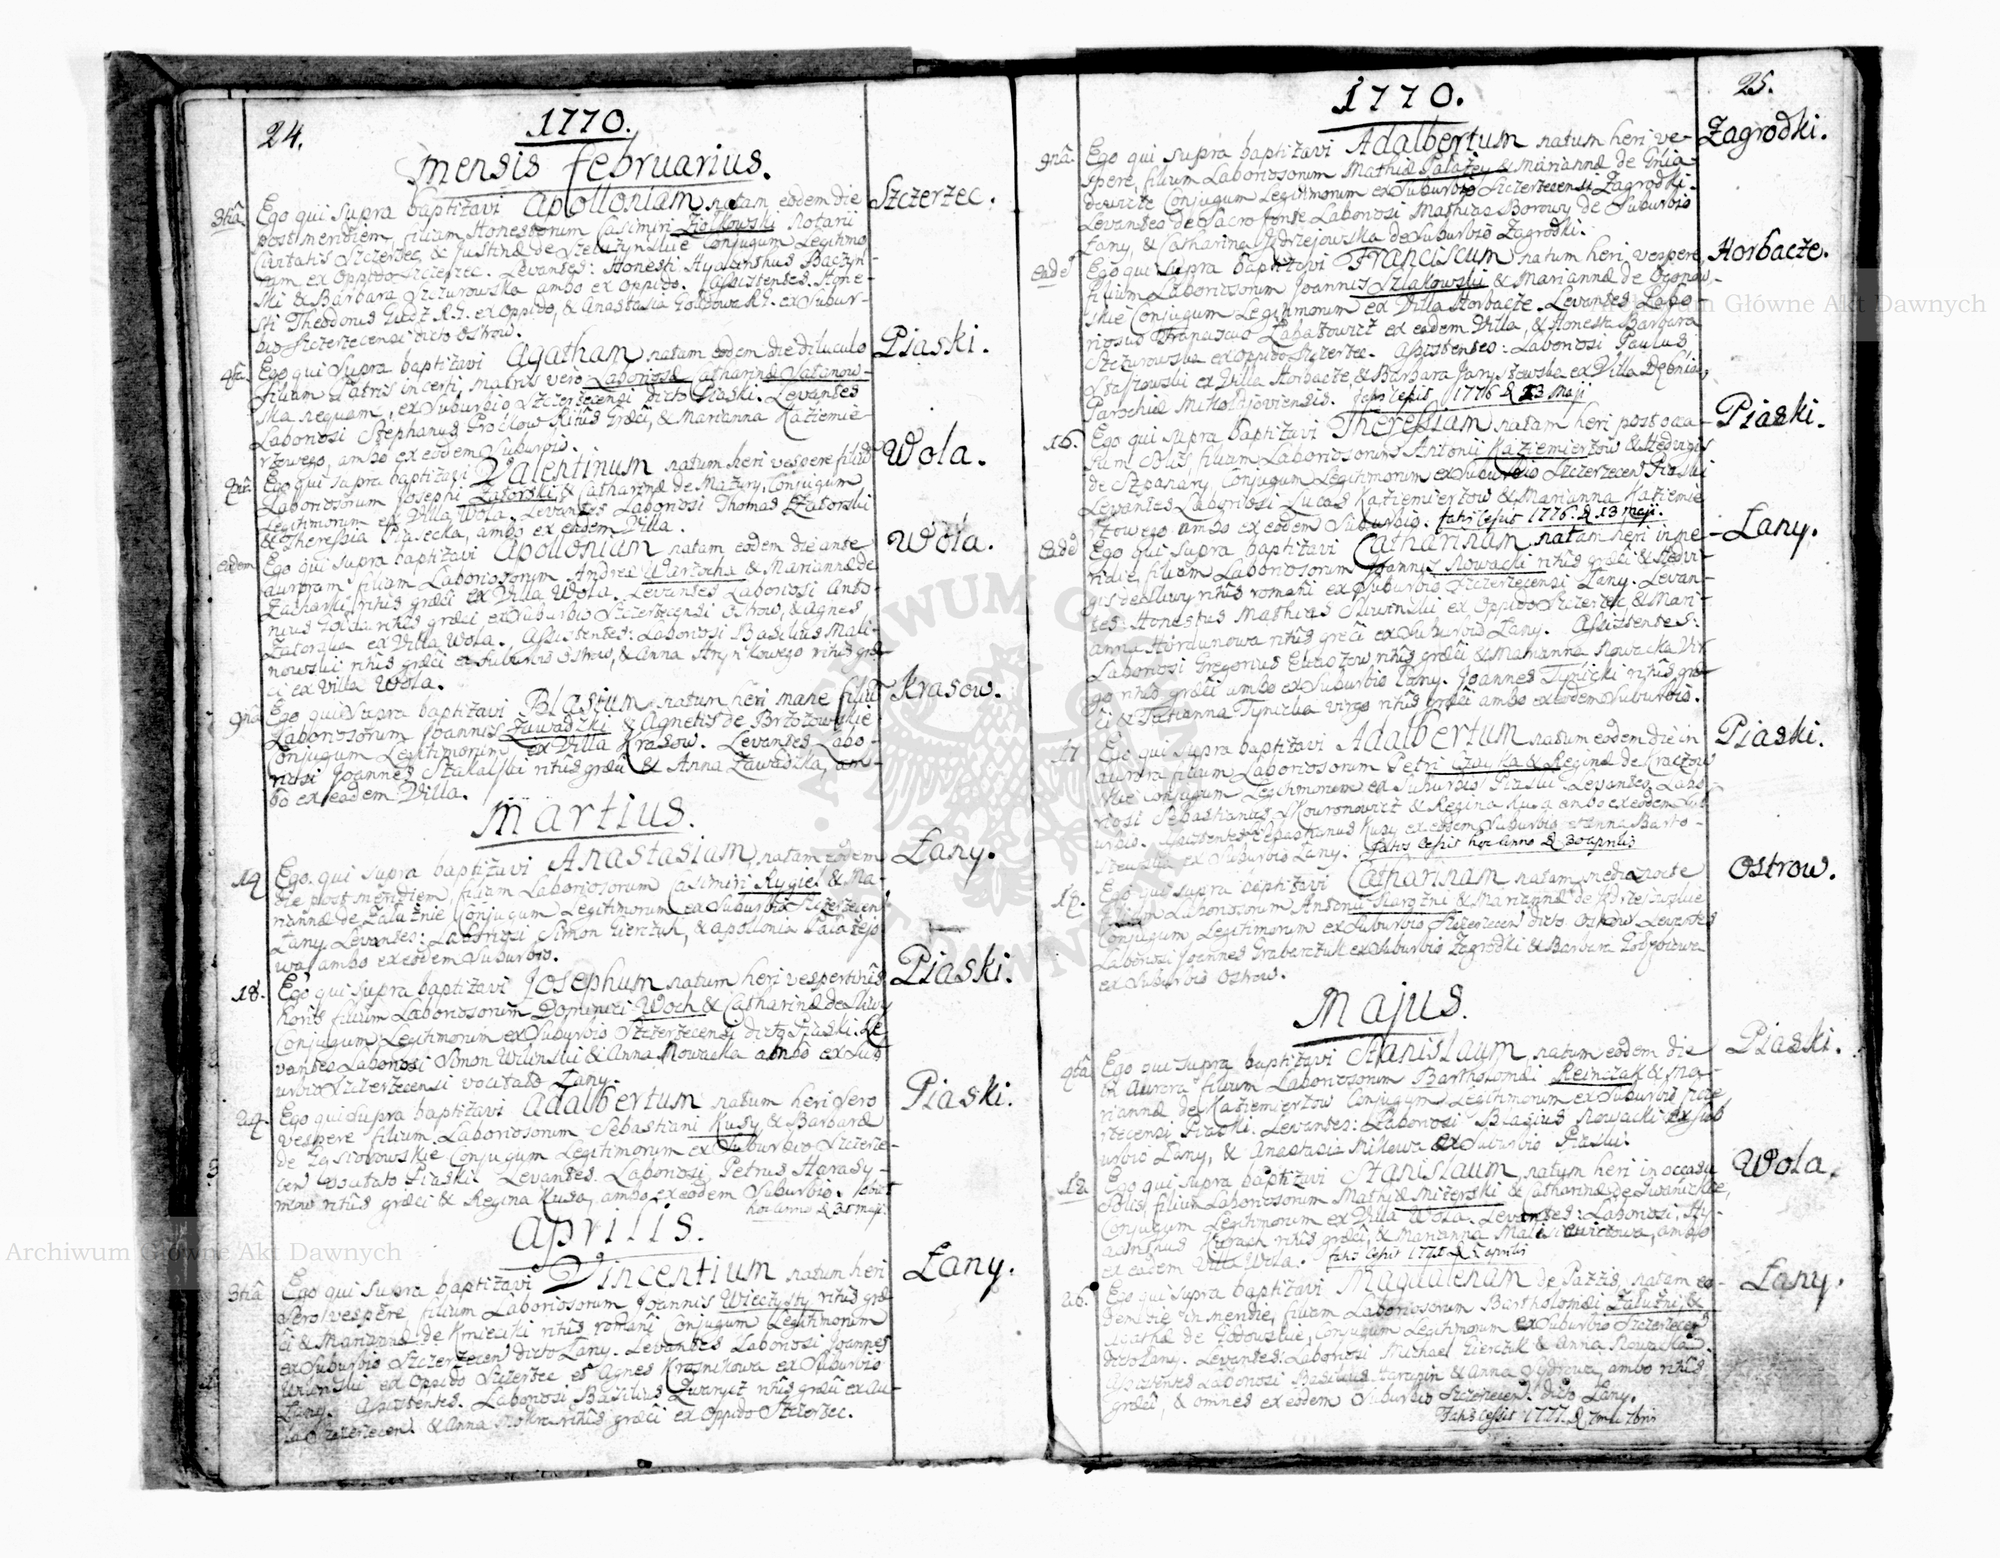 24.
1770.
mensis februarius.
Szczerzec.
Ego qui supra baptizavi Apolloniam natam eodem die
post meridiem, filiam Honestorum Casimiri Ziolkowski Notarii
Civitatis Szczerzec, & Justinæ de Conjugum Legitimo
rum ex Oppido Szczerzec. Levantes: Honesti Hyacinthus Baczyn-
ski & Barbara Szczurowska ambo ex Oppido. Assistentes Hone-
sti Theodorus R.G. ex Oppido, & Anastasia R.G. ex Subur-
bio Szczerzecensi dicto Ostrow.
Piaski.
Ego qui supra baptizavi Agatham natam eodem die diluculo
filiam Patris incerti, matris vero Laboriosæ Catharinæ
ska nequam, ex Suburbio Szczerzecensi dicto Piaski. Levantes
Laboriosi Stephanus Ritus Græci, & Marianna Kaziemie-
rzowego, ambo ex eodem Suburbio.
Wola.
Ego qui supra baptizavi Valentinum natum heri vespere filium
Laboriosorum Josephi Zatorski & Catharinæ de Mazury, Conjugum
Legitimorum ex Villa Wola. Levantes Laboriosi Thomas Zatorski
& Theressia Piasecka, ambo ex eadem Villa.
Wola.
eadem
Ego qui supra baptizavi Apolloniam natam eodem die ante
auroram filiam Laboriosorum Andreæ & Mariannæ de
ritus græci ex Villa Wola. Levantes Laboriosi Anto-
nius ritus græci ex Suburbio Szczerzecensi Ostrow, & Agnes
ex Villa Wola. Assistentes: Laboriosi Basilius Mali-
nowski ritus græci ex Suburbio Ostrow, & Anna ritus græ-
ci ex Villa Wola.
Krasow.
Ego qui supra baptizavi Blasium natum heri mane filium
Laboriosorum Joannis Zawadzki & Agnetis de Brzozowskie
Conjugum Legitimorum ex Villa Krasow. Levantes Labo-
riosi Joannes Skakalski ritus græci & Anna Zawadzka, am-
bo ex eadem Villa.
Martius.
Łany.
14
Ego qui supra baptizavi Anastasiam natam eodem
die post meridiem, filiam Laboriosorum Casimiri Rygiel & Ma-
riannæ de Załużnie Conjugum Legitimorum ex Suburbio Szczerzecen
Łany. Levantes: Laboriosi Simon Gierczuk, & Apollonia Palażejo
wa, ambo ex eodem Suburbio.
Piaski.
18.
Ego qui supra baptizavi Josephum natum heri vespertinis
horis filium Laboriosorum Dominici Woch & Catharinæ de
Conjugum Legitimorum ex Suburbio Szczerzecensi dicto Piaski. Le
vantes Laboriosi Simon Wilinski & Anna Nowacka ambo ex Sub
urbio Szczerzecensi vocitato Łany.
Piaski.
24.
Ego qui supra baptizavi Adalbertum natum heri sero
vespere filium Laboriosorum Sebastiani Kusy & Barbaræ
de Conjugum Legitimorum ex Suburbio Szczerze-
cen vocitato Piaski. Levantes Laboriosi Petrus Harasy-
mow ritus græci & Regina Kusa, ambo ex eodem Suburbio.
hoc anno d 30 maji.
Aprilis.
Łany.
Ego qui supra baptizavi Vincentium natum heri
sero vespere filium Laboriosorum Joannis Wieczysty ritus græ
ci & Mariannæ de Kmieciki ritus romani Conjugum Legitimorum
ex Suburbio Szczerzecen dicto Łany. Levantes Laboriosi Joannes
Wilinski ex Oppido Szczerzec et Agnes Krasnikowa ex Suburbio
Łany. Assistentes. Laboriosi Basilius Iwanycz ritus græci ex
& Anna ritus græci ex Oppido Szczerzec.
25.
1770.
Zagrodki.
Ego qui supra baptizavi Adalbertum natum heri ve-
spere, filium Laboriosorum Mathiæ Palażey & Mariannæ de Gnia-
dewicze Conjugum Legitimorum ex Suburbio Szczerzecensi Zagrodki.
Levantes de Sacro fonte Laboriosi Mathias Borowy de Suburbio
Łany, & Catharina Jędrzejowska de Suburbio Zagrodki.
Horbacze.
Ego qui supra baptizavi Franciscum natum heri vespere,
filium Laboriosorum Joannis Szlakowski & Mariannæ de Ogonow-
skie Conjugum Legitimorum ex Villa Horbacze. Levantes Labo
riosus Franciscus Labaszowicz ex eadem Villa, & Honesta Barbara
Szczurowska ex Oppido Szczerzec. Assistentes: Laboriosi Paulus
ex Villa Horbacze, & Barbara ex Villa Dębnia,
Parochiæ Mikołajoviensis. 1776 d 13 maji
Piaski.
16.
Ego qui supra baptizavi Theresiam natam heri post occa-
sum Solis, filiam Laboriosorum Antonii Kaziemierzow & Hedvigis
de Szpanary, Conjugum Legitimorum ex Suburbio Szczerzecen Piaski
Levantes Laboriosi Lucas Kaziemierzow & Marianna Kaziemie
rzowego ambo ex eodem Suburbio. 1776. d 13 maji.
Łany.
Ego qui supra baptizavi Catharinam natam heri in me-
ridie, filiam Laboriosorum Joannis Nowacki ritus græci & Hedvi-
gis de Sliwy ritus romani ex Suburbio Szczerzecensi Łany. Levan-
tes: Honestus Mathias Sliwinski ex Oppido Szczerzec & Mari-
anna ritus græci ex Suburbio Łany. Assistentes:
Laboriosi Gregorius ritus græci & Marianna Nowacka Vir
go ritus græci ambo ex Suburbio Łany. Joannes Tynicki ritus græ-
ci & Tatianna Tynicka virgo ritus græci ambo ex eodem Suburbio.
Piaski.
17
Ego qui supra baptizavi Adalbertum natum eodem die in
aurora filium Laboriosorum Petri Czayka & Reginæ de Kraczow
skie Conjugum Legitimorum ex Suburbio Piaski Levantes, Labo
riosi Sebastianus Skowronowicz & Regina Kusa ambo ex eodem Sub
urbio. Assistentes Sebastianus Kusy ex eodem Suburbio et Anna Barto-
ex Suburbio Łany. hoc anno d 30 aprilis
Ostrow.
Ego qui supra baptizavi Catharinam natam media nocte
filiam Laboriosorum Antonii & Mariannæ de Jędrzejowskie
Conjugum Legitimorum ex Suburbio Szczerzecen dicto Ostrow. Levantes
Laboriosi Joannes Grabarczuk ex Suburbio Zagrodki & Barbara
ex Suburbio Ostrow.
Majus.
Piaski.
Ego qui supra baptizavi Stanislaum, natum eodem die
in Aurora filium Laboriosorum Bartholomæi Reinczak & Ma-
riannæ de Kaziemierzow Conjugum Legitimorum ex Suburbio Szcze
rzecensi Piaski. Levantes: Laboriosi Blasius Nowacki ex Sub
urbio Łany, & Anastasia Mikowa ex Suburbio Piaski.
Wola.
18
Ego qui supra baptizavi Stanislaum natum heri in occasu
Solis, filium Laboriosorum Mathiæ Mizerski & Catharinæ de Iwanickie,
Conjugum Legitimorum ex Villa Wola. Levantes: Laboriosi, Hy-
acinthus ritus græci, & Marianna ambo
ex eadem Villa Wola.
Łany.
26.
Ego qui supra baptizavi Magdalenam de Pazzis, natam eo-
dem die in meridie, filiam Laboriosorum Bartholomæi Załużni, &
Agathæ de Godowskie, Conjugum Legitimorum ex Suburbio Szczerzecen
dicto Łany. Levantes: Laboriosi Michael Gierczuk & Anna Nowacka.
Assistentes Laboriosi Basilius & Anna ambo ritus
græci, & omnes ex eodem Suburbio Szczerzecen dicto Łany.
Archiwum Główne Akt Dawnych
Archiwum Główne Akt Dawnych